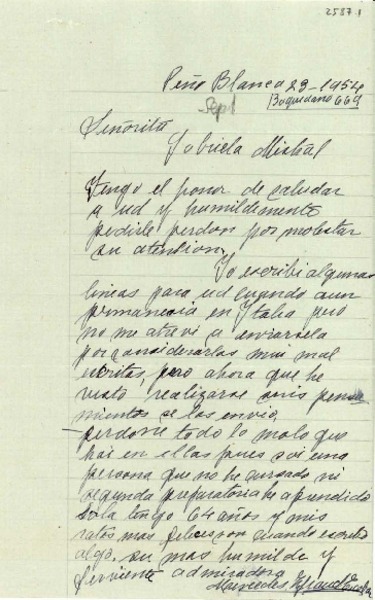 2587.1
Peña Blanca 23-1954
Sept
Boquedano 669
Señorita
Gabriela Mistral
Tengo el honor de saludar
a ud y humildemente
pedirle perdon por molestar
su atention.
Yo escribi algunas
lineas para ud cuando aun
permanecia en Italia pero
no me atrevi a enviarsela
por considerarlas muy mal
escritas, pero ahora que he
visto realizarse mis pensa
mientos se las envio,
perdone todo lo malo que
hai en ellas pues soi una
persona que no he cursado ni
segunda preparatoria he aprendido
sola tengo 64 años y mis
ratos mas felices son cuando escribo
algo. su mas humilde y
ferviente admiradora
Mercedes